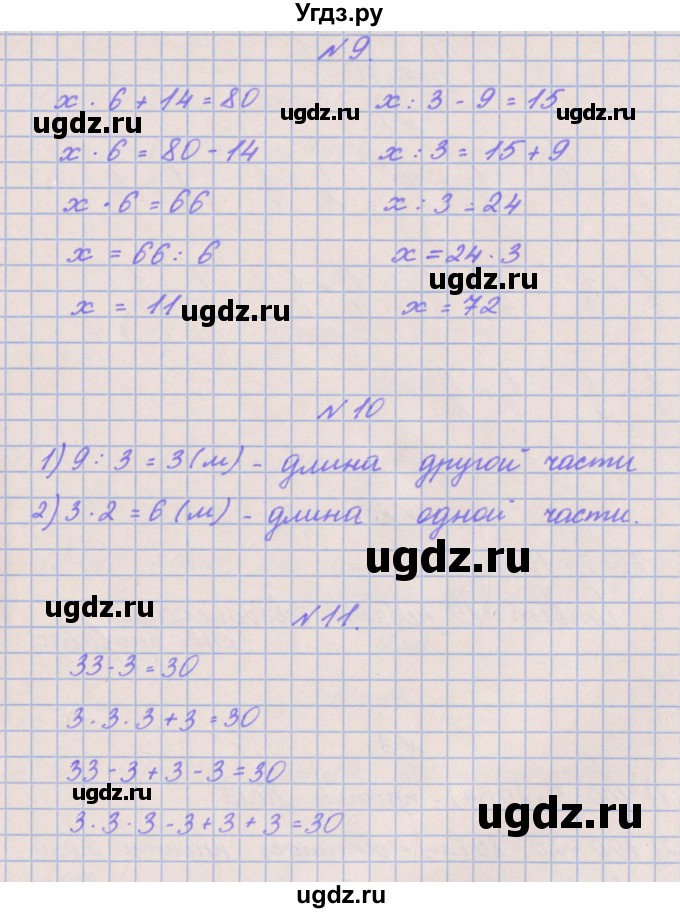 Угдз.ру
№9.
x · 6 + 14 = 80
x : 3 - 9 = 15
ugdz.ru
ugdz.ru
ugdz.ru
x · 6 = 80 - 14
x : 3 = 15 + 9
x · 6 = 66
x : 3 = 24
x = 66 : 6
x = 24 · 3
ugdz.ru
x = 11
ugdz.ru
x = 72
№10
1) 9 : 3 = 3 (м) - длина другой части
2) 3 · 2 = 6 (м) - длина одной части.
ugdz.ru
ugdz.ru
№11.
33 - 3 = 30
3 · 3 · 3 + 3 = 30
33 - 3 + 3 - 3 = 30
ugdz.ru
ugdz.ru
3 · 3 · 3 - 3 + 3 + 3 = 30
ugdz.ru